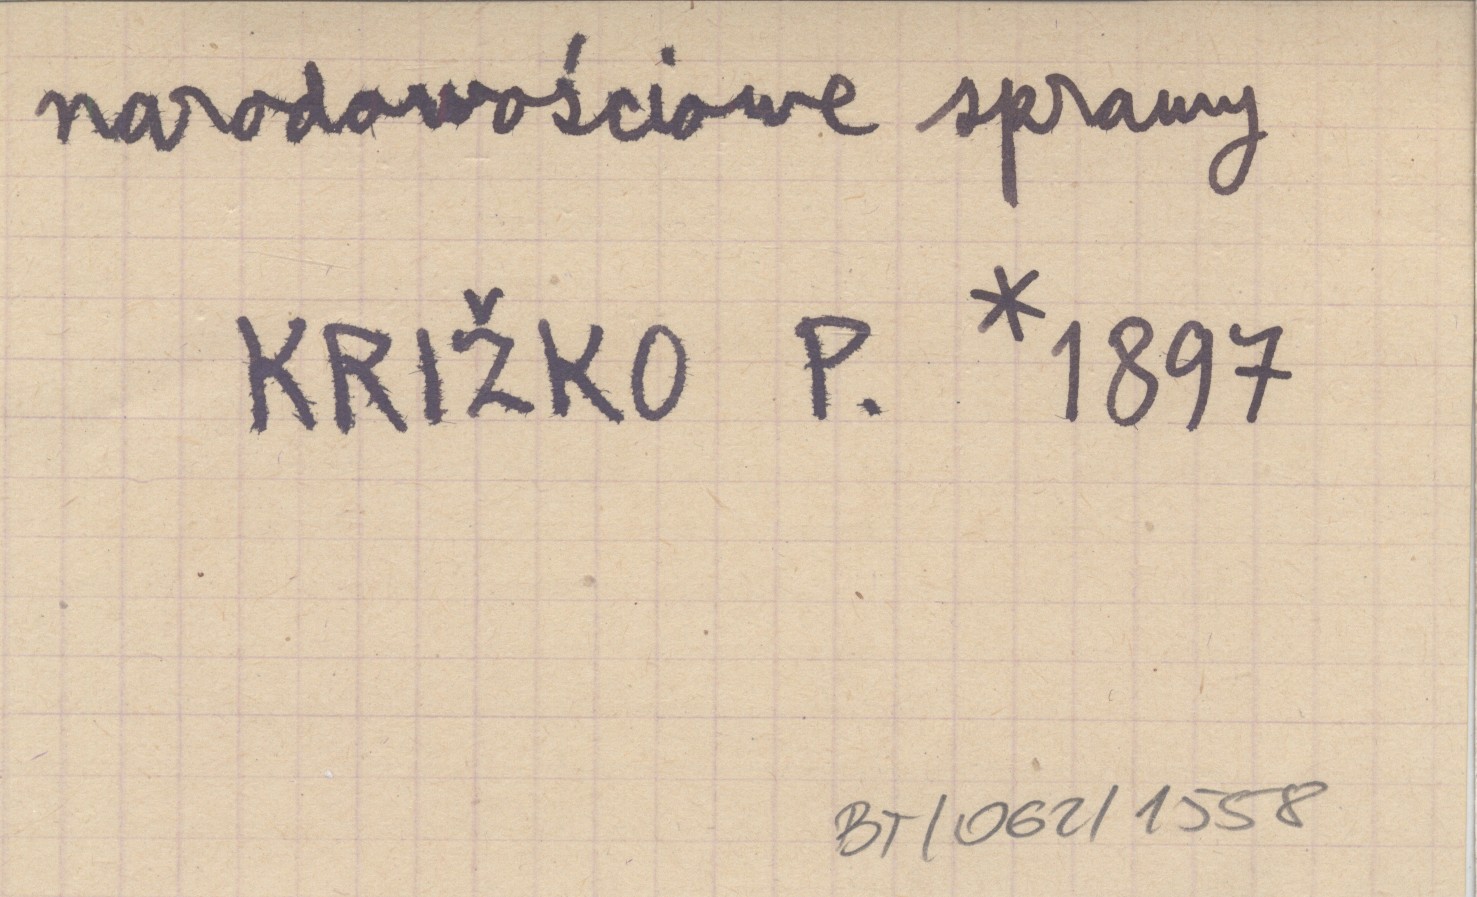 narodowościowe sprawy
KRIŽKO P. *1897
BT/062/1558